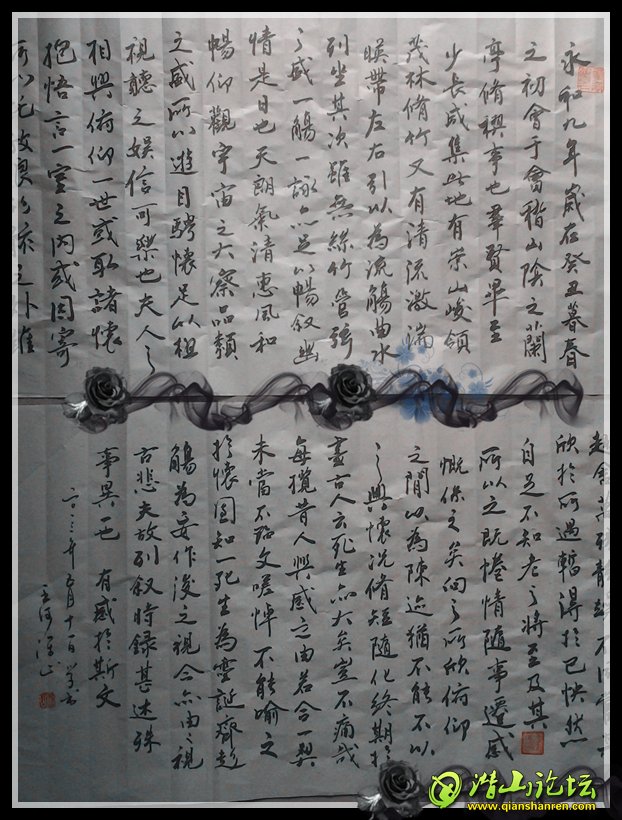 永和九年歲在癸丑暮春
之初會于會稽山陰之蘭
亭脩禊事也羣賢畢至
少長咸集此地有崇山峻領
茂林脩竹又有清流激湍
暎帶左右引以為流觴曲水
列坐其次雖無絲竹管弦
之盛一觴一詠亦足以暢叙幽
情是日也天朗氣清惠風和
暢仰觀宇宙之大察品類
之盛所以遊目騁懷足以極
視聽之娛信可樂也夫人之
相與俯仰一世或取諸懷
抱悟言一室之内或因寄
之外雖
欣於所遇暫得於己怏然
自足不知老之將至及其
所以之既惓情隨事遷感
慨係之矣向之所欣俯仰
之間以為陳迹猶不能不以
之興懷況脩短隨化終期於
盡古人云死生亦大矣豈不痛哉
每攬昔人興感之由若合一契
未嘗不臨文嗟悼不能喻之
於懷固知一死生為虛誕齊彭
觴為妄作後之視今亦由之視
古悲夫故列叙時錄其述殊
事異也 有感於斯文
年五月十一日學書
潜山论坛
www.qianshanren.com